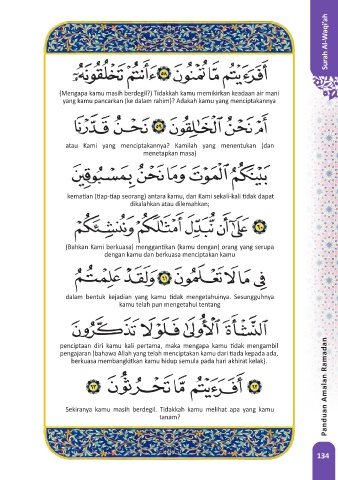 Surah Al-Waqi'ah
أَفَرَءَيْتُم مَّا تُمْنُونَ ٥٨ ءَأَنتُمْ تَخْلُقُونَهُۥٓ
(Mengapa kamu masih berdegil?) Tidakkah kamu memikirkan keadaan air mani
yang kamu pancarkan (ke dalam rahim)? Adakah kamu yang menciptakannya
أَمْ نَحْنُ ٱلْخَـٰلِقُونَ ٥٩ نَحْنُ قَدَّرْنَا
atau Kami yang menciptakannya? Kamilah yang menentukan (dan
menetapkan masa)
بَيْنَكُمُ ٱلْمَوْتَ وَمَا نَحْنُ بِمَسْبُوقِينَ
kematian (tiap-tiap seorang) antara kamu, dan Kami sekali-kali tidak dapat
dikalahkan atau dilemahkan;
٦٠ عَلَىٰٓ أَن نُّبَدِّلَ أَمْثَـٰلَكُمْ وَنُنشِئَكُمْ
(Bahkan Kami berkuasa) menggantikan (kamu dengan) orang yang serupa
dengan kamu dan berkuasa menciptakan kamu
فِى مَا لَا تَعْلَمُونَ ٦١ وَلَقَدْ عَلِمْتُمُ
dalam bentuk kejadian yang kamu tidak mengetahuinya. Sesungguhnya
kamu telah pun mengetahui tentang
ٱلنَّشْأَةَ ٱلْأُولَىٰ فَلَوْلَا تَذَكَّرُونَ
penciptaan diri kamu kali pertama, maka mengapa kamu tidak mengambil
pengajaran (bahawa Allah yang telah menciptakan kamu dari tiada kepada ada,
berkuasa membangkitkan kamu hidup semula pada hari akhirat kelak).
٦٢ أَفَرَءَيْتُم مَّا تَحْرُثُونَ ٦٣
Sekiranya kamu masih berdegil. Tidakkah kamu melihat apa yang kamu
tanam?
Panduan Amalan Ramadan
134